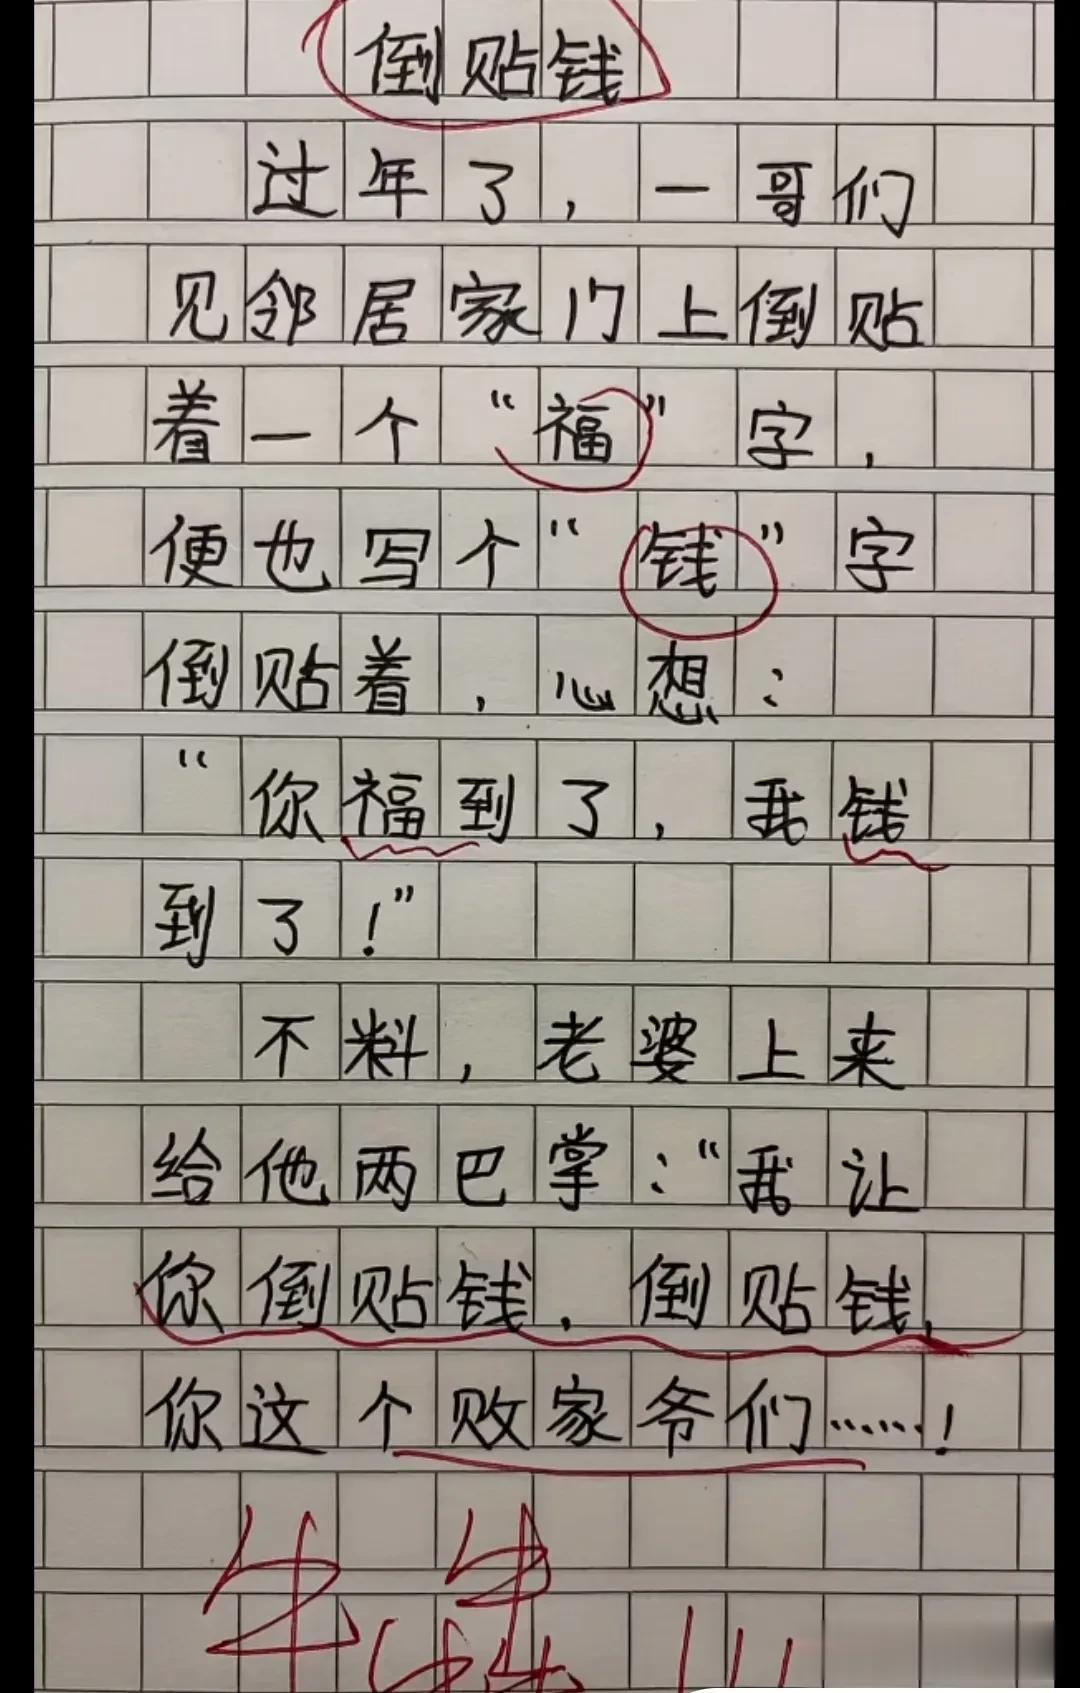 倒贴钱
过年了，一哥们
见邻居家门上倒贴
着一个“福”字，
便也写个“钱”字
倒贴着，心想：
“你福到了，我钱
到了！”
不料，老婆上来
给他两巴掌：“我让
你倒贴钱，倒贴钱，
你这个败家爷们……！